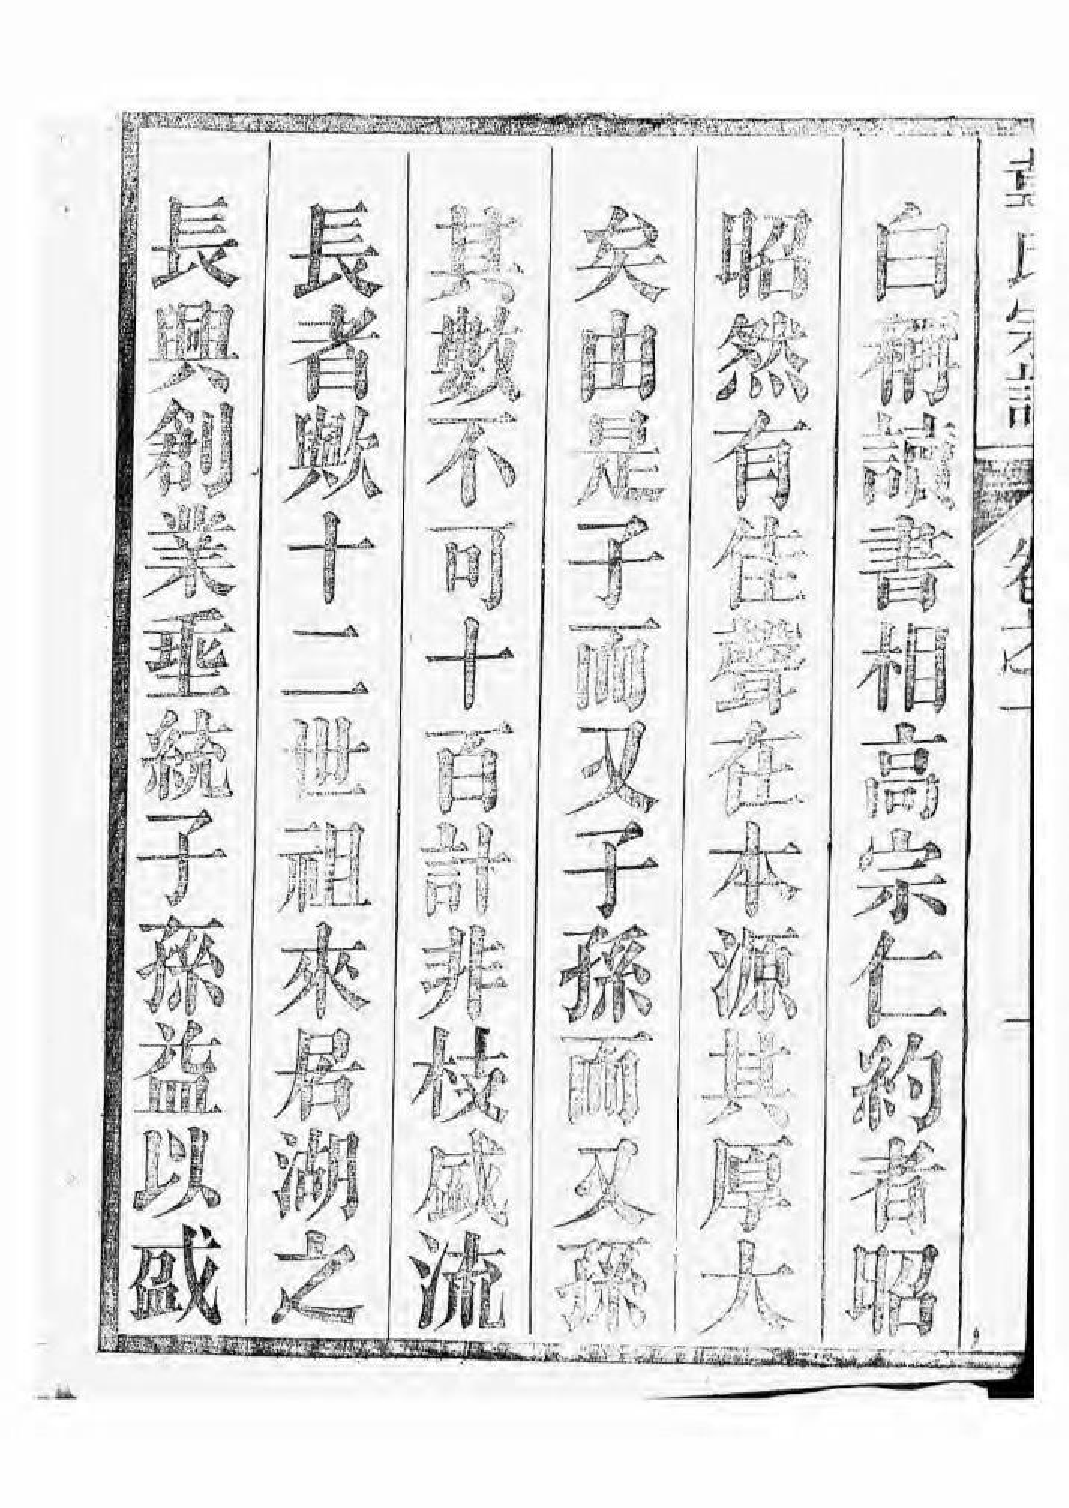 氏宗譜 卷之一 一
自稱讀書相高宗仁約者昭
昭然有佳聲在本源其厚大
矣由是子而又子孫而又孫
其數不可十百計非枝盛流
長者歟十二世祖來居湖之
長興創業垂統子孫益以盛